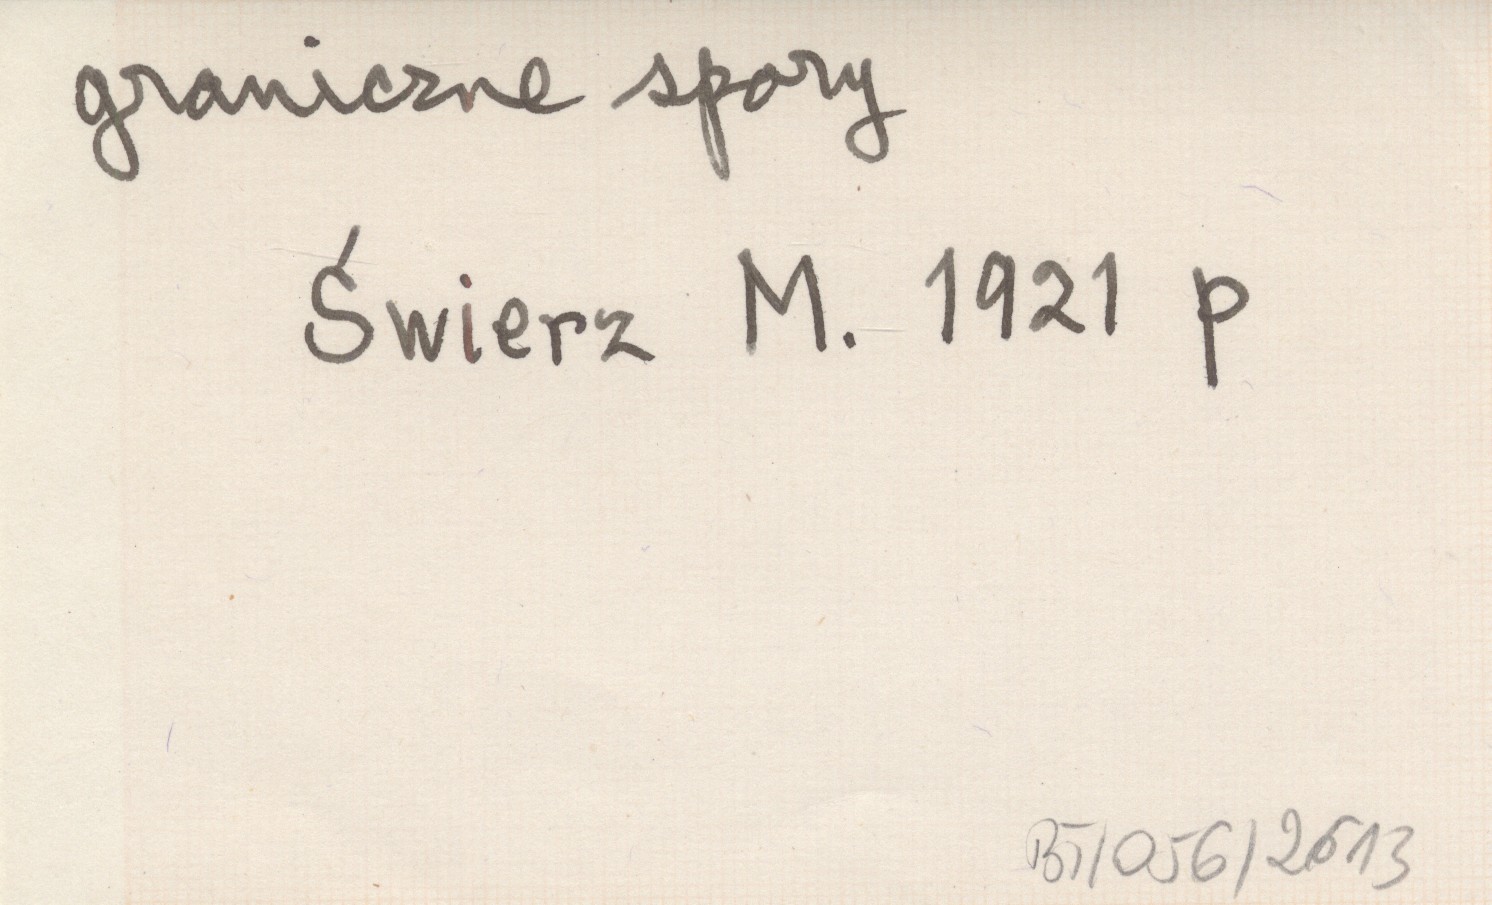 graniczne spory
Świerz M. 1921 p
BT/056/2613